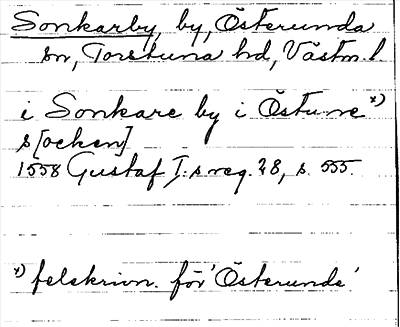 Sonkarby, by, Österunda
sn, Torstuna hd, Västm. l.
i Sonkare by i Östune x)
s[ocken]
1558 Gustaf I:s reg. 28, s. 555.
x) felskrivn. för 'Österunde'